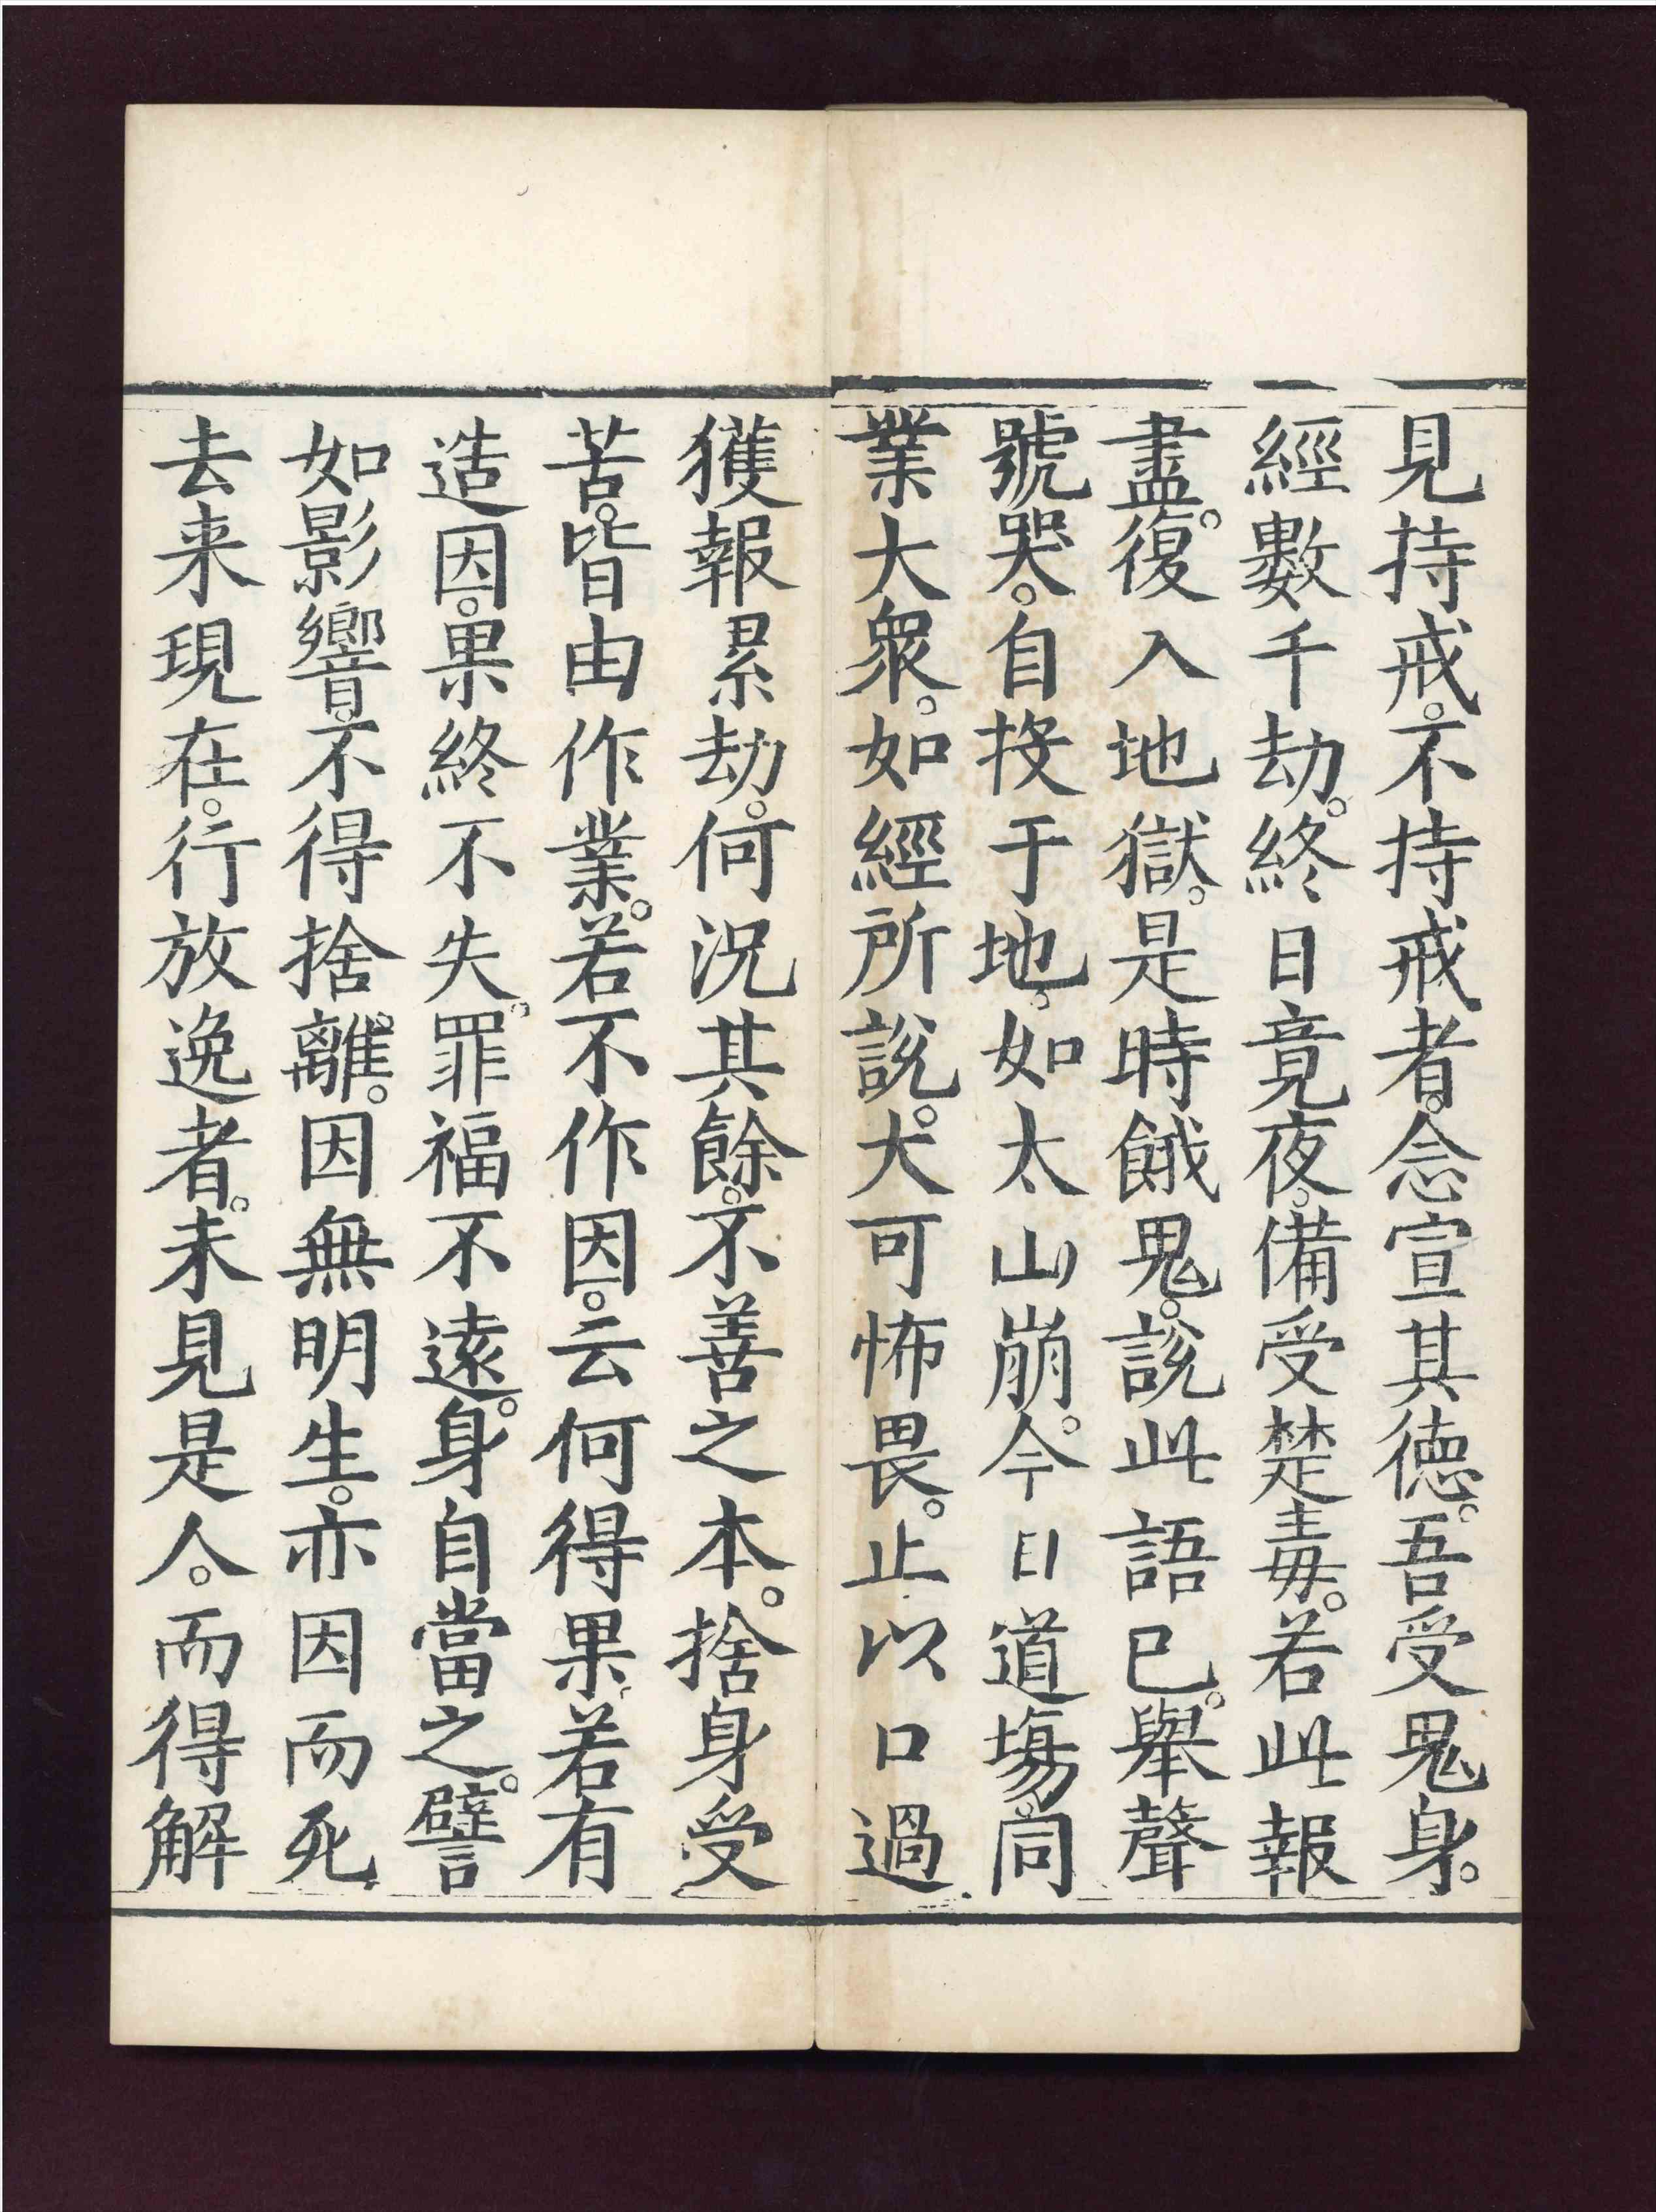 見持戒。不持戒者。念宣其德。吾受鬼身。
經數千劫。終日竟夜。備受楚毒。若此報
盡。復入地獄。是時餓鬼。說此語已。舉聲
號哭。自投于地。如太山崩。今日道場。同
業大眾。如經所說。大可怖畏。止以口過
獲報累劫。何況其餘。不善之本。捨身受
苦。皆由作業。若不作因。云何得果。若有
造因。果終不失。罪福不遠。身自當之。譬
如影響。不得捨離。因無明生。亦因而死
去来現在。行放逸者。未見是人。而得解